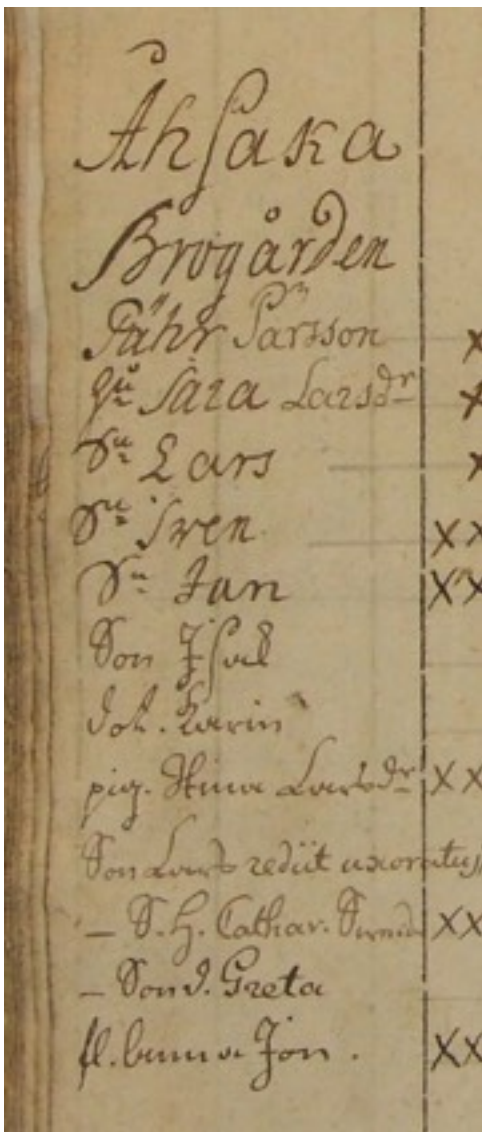 Åhsaka
Brogården
Pähr Pärsson x
Hu Sara Larsdr x
Sn Lars x
Sn Sven xx
Sn Jan xx
Son Isac
dot. Karin
pig. Stina Larsdr xx
Son Lars rediit uxoratus
– S. H. Cathar. Svensd xx
– Sond. Greta
Jon. xx